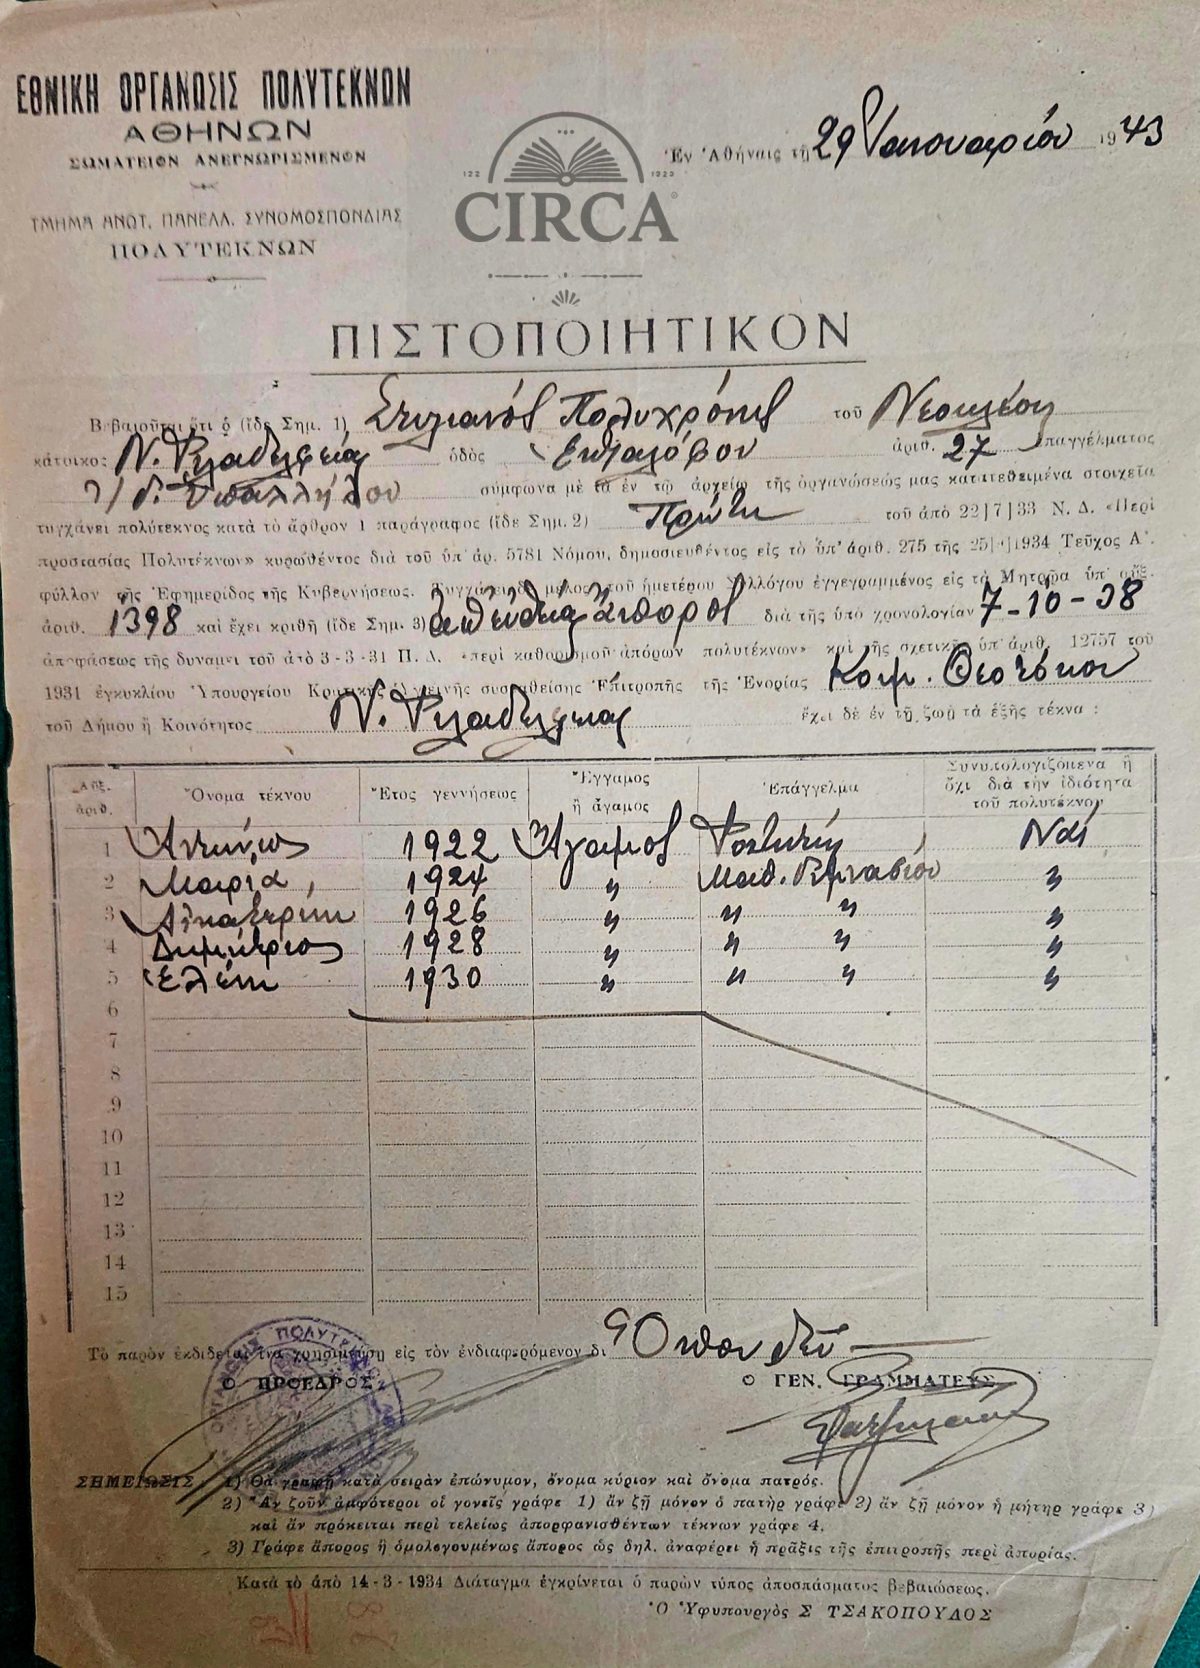 ΕΘΝΙΚΗ ΟΡΓΑΝΩΣΙΣ ΠΟΛΥΤΕΚΝΩΝ
ΑΘΗΝΩΝ
ΣΩΜΑΤΕΙΟΝ ΑΝΕΓΝΩΡΙΣΜΕΝΟΝ
ΤΜΗΜΑ ΑΝΩΤ. ΠΑΝΕΛΛ. ΣΥΝΟΜΟΣΠΟΝΔΙΑΣ
ΠΟΛΥΤΕΚΝΩΝ
Ἐν Ἀθήναις τῇ 29 Ἰανουαρίου 1943
122 1923
CIRCA
ΠΙΣΤΟΠΟΙΗΤΙΚΟΝ
Βεβαιοῦται ὅτι ὁ (ἴδε Σημ. 1) Στυλιανός Πολυχρόνης τοῦ Νεοκλέους
κάτοικος Ν. Φιλαδελφείας ὁδὸς ἀριθ. 27 ἐπαγγέλματος
Ὑπαλλήλου σύμφωνα μὲ τὰ ἐν τῷ ἀρχείῳ τῆς ὀργανώσεώς μας κατατεθειμένα στοιχεῖα
τυγχάνει πολύτεκνος κατὰ τὸ ἄρθρον 1 παράγραφος (ἴδε Σημ. 2) Πρώτη τοῦ ἀπὸ 22|7|33 Ν. Δ. «Περὶ
προστασίας Πολυτέκνων» κυρωθέντος διὰ τοῦ ὑπ' ἀρ. 5781 Νόμου, δημοσιευθέντος εἰς τὸ ὑπ' ἀριθ. 275 τῆς 25| |1934 Τεῦχος Α'.
φύλλον τῆς Ἐφημερίδος τῆς Κυβερνήσεως. Τυγχάνει δὲ μέλος τοῦ ἡμετέρου Συλλόγου ἐγγεγραμμένος εἰς τὰ Μητρῷα ὑπ' αὔξ.
ἀριθ. 1398 καὶ ἔχει κριθῆ (ἴδε Σημ. 3) ἄπορος διὰ τῆς ὑπὸ χρονολογίαν 7-10-38
ἀποφάσεως τῆς δυνάμει τοῦ ἀπὸ 3-3-31 Π. Δ. «περὶ καθορισμοῦ ἀπόρων πολυτέκνων» καὶ τῆς σχετικῆς ὑπ' ἀριθ. 12757 τοῦ
1931 ἐγκυκλίου Ὑπουργείου Κρατικῆς Ὑγιεινῆς συσταθείσης Ἐπιτροπῆς τῆς Ἐνορίας Κοιμ. Θεοτόκου
τοῦ Δήμου ἢ Κοινότητος Ν. Φιλαδελφείας ἔχει δὲ ἐν τῇ ζωῇ τὰ ἑξῆς τέκνα :
Αὔξ. ἀριθ. Ὄνομα τέκνου Ἔτος γεννήσεως Ἔγγαμος ἢ ἄγαμος Ἐπάγγελμα Συνυπολογιζόμενα ἢ ὄχι διὰ τὴν ἰδιότητα τοῦ πολυτέκνου
1 Ἀντώνιος 1922 Ἄγαμος Φοιτητής Ναί
2 Μαρία 1924 〃 Μαθ. Γυμνασίου 〃
3 Αἰκατερίνη 1926 〃 〃 〃 〃
4 Δημήτριος 1928 〃 〃 〃 〃
5 Ἑλένη 1930 〃 〃 〃 〃
6
7
8
9
10
11
12
13
14
15
Τὸ παρὸν ἐκδίδεται ἵνα χρησιμεύσῃ εἰς τὸν ἐνδιαφερόμενον δι' Ὅπου δεῖ
Ο ΠΡΟΕΔΡΟΣ Ο ΓΕΝ. ΓΡΑΜΜΑΤΕΥΣ
ΣΗΜΕΙΩΣΙΣ 1) Θὰ γραφῇ κατὰ σειρὰν ἐπώνυμον, ὄνομα κύριον καὶ ὄνομα πατρός.
2) Ἂν ζοῦν ἀμφότεροι οἱ γονεῖς γράφε 1) ἂν ζῇ μόνον ὁ πατὴρ γράφε 2) ἂν ζῇ μόνον ἡ μήτηρ γράφε 3)
καὶ ἂν πρόκειται περὶ τελείως ἀπορφανισθέντων τέκνων γράφε 4.
3) Γράφε ἄπορος ἢ ὁμολογουμένως ἄπορος ὡς δηλ. ἀναφέρει ἡ πρᾶξις τῆς ἐπιτροπῆς περὶ ἀπορίας.
Κατὰ τὸ ἀπὸ 14-3-1934 Διάταγμα ἐγκρίνεται ὁ παρὼν τύπος ἀποσπάσματος βεβαιώσεως.
Ὁ Ὑφυπουργὸς Σ ΤΣΑΚΟΠΟΥΛΟΣ